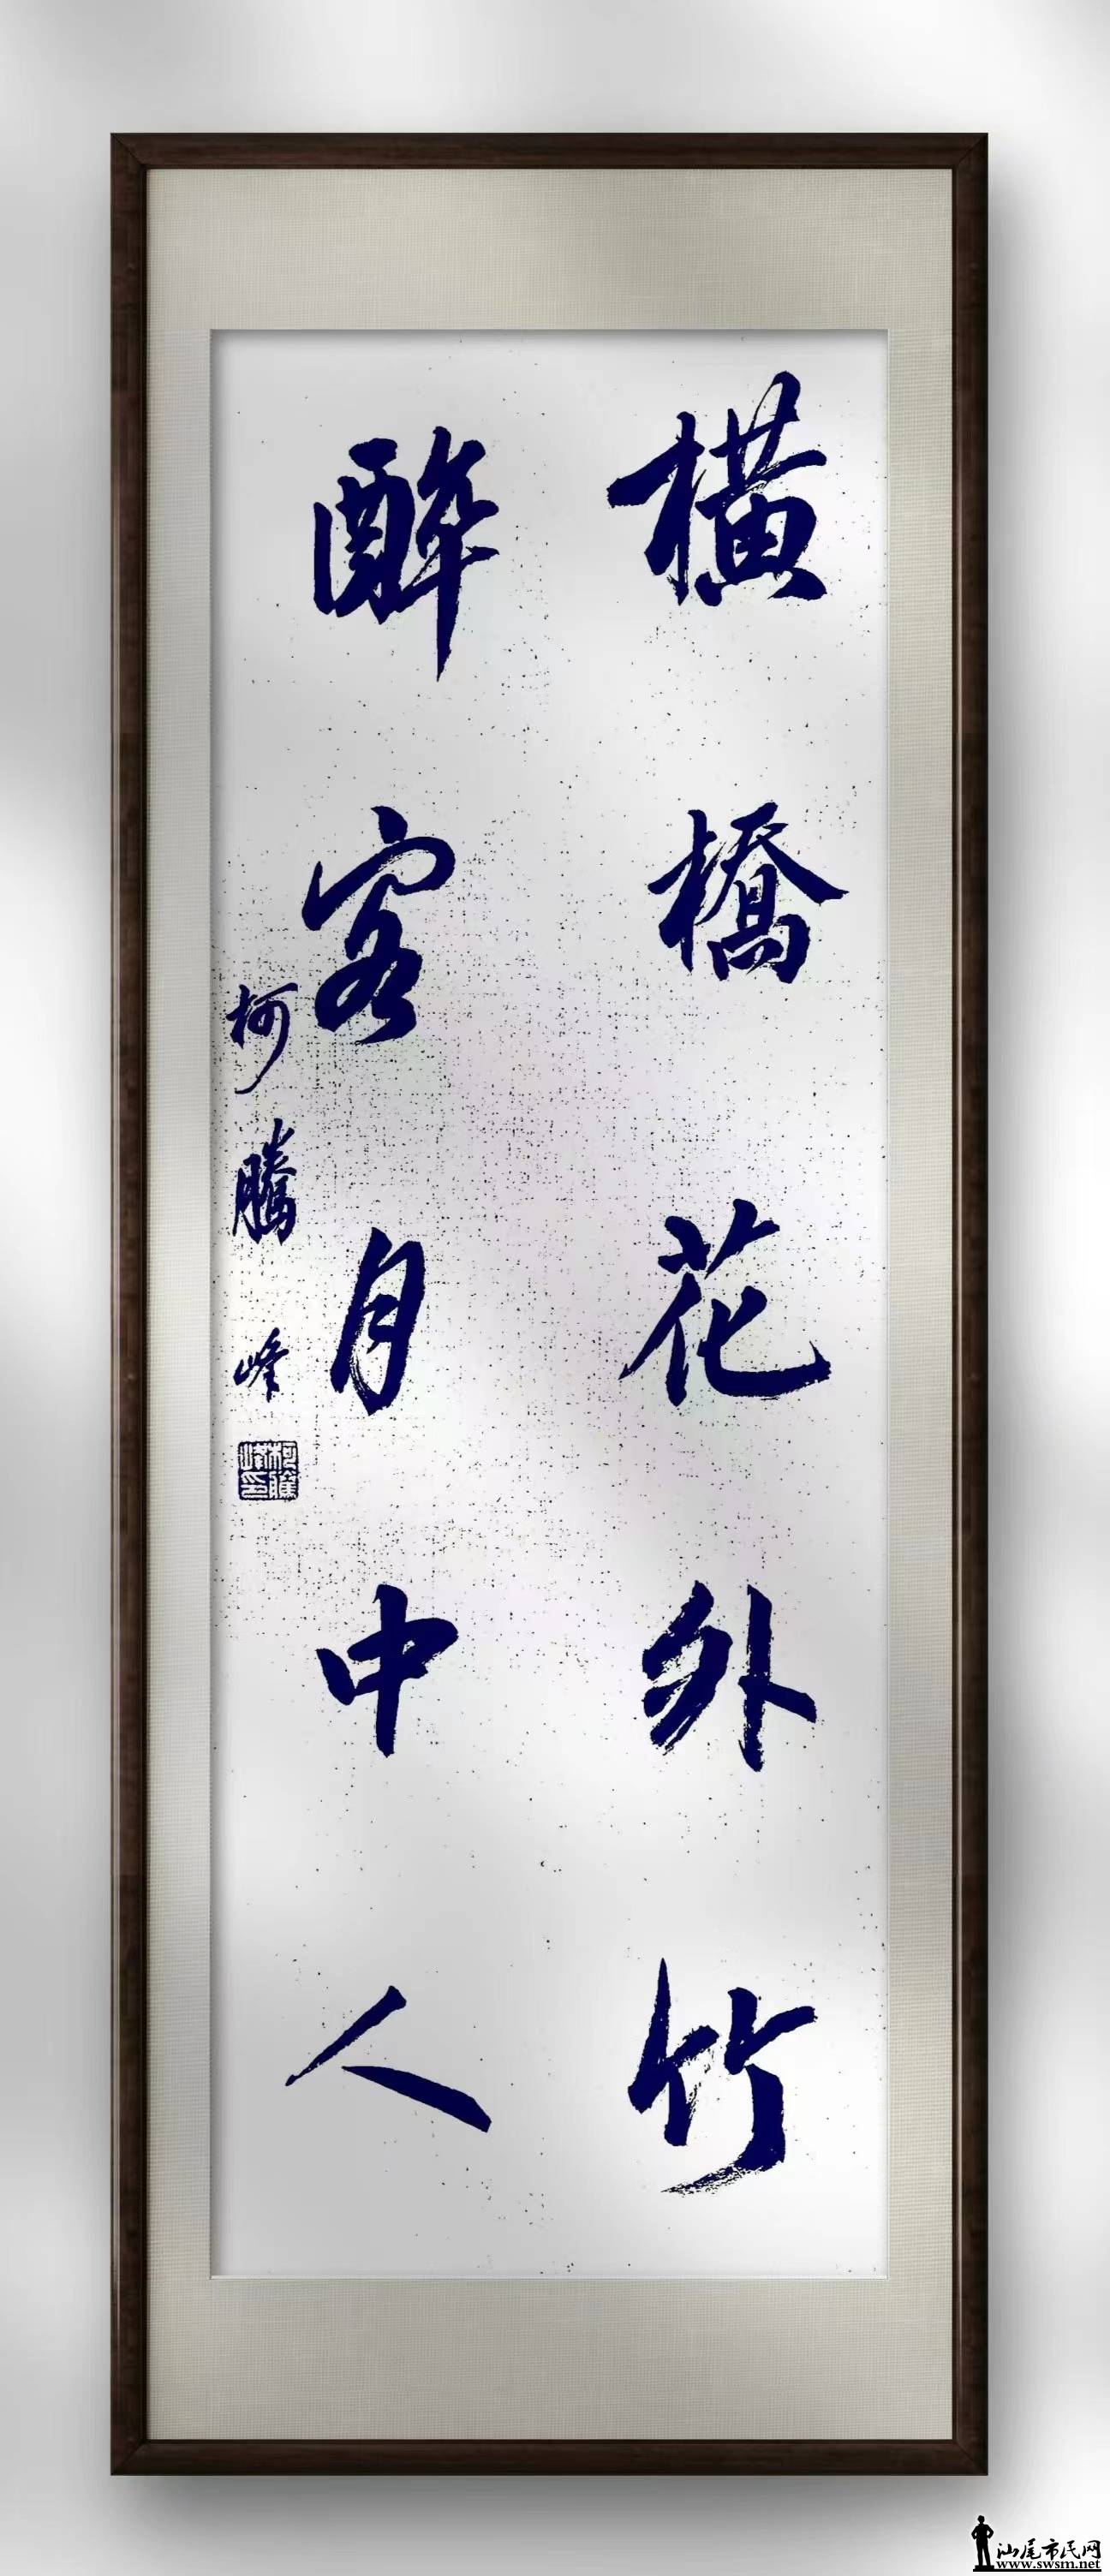 橫橋花外竹
醉客月中人
柯騰峰
柯騰峰印
汕尾市民网
www.swsm.net